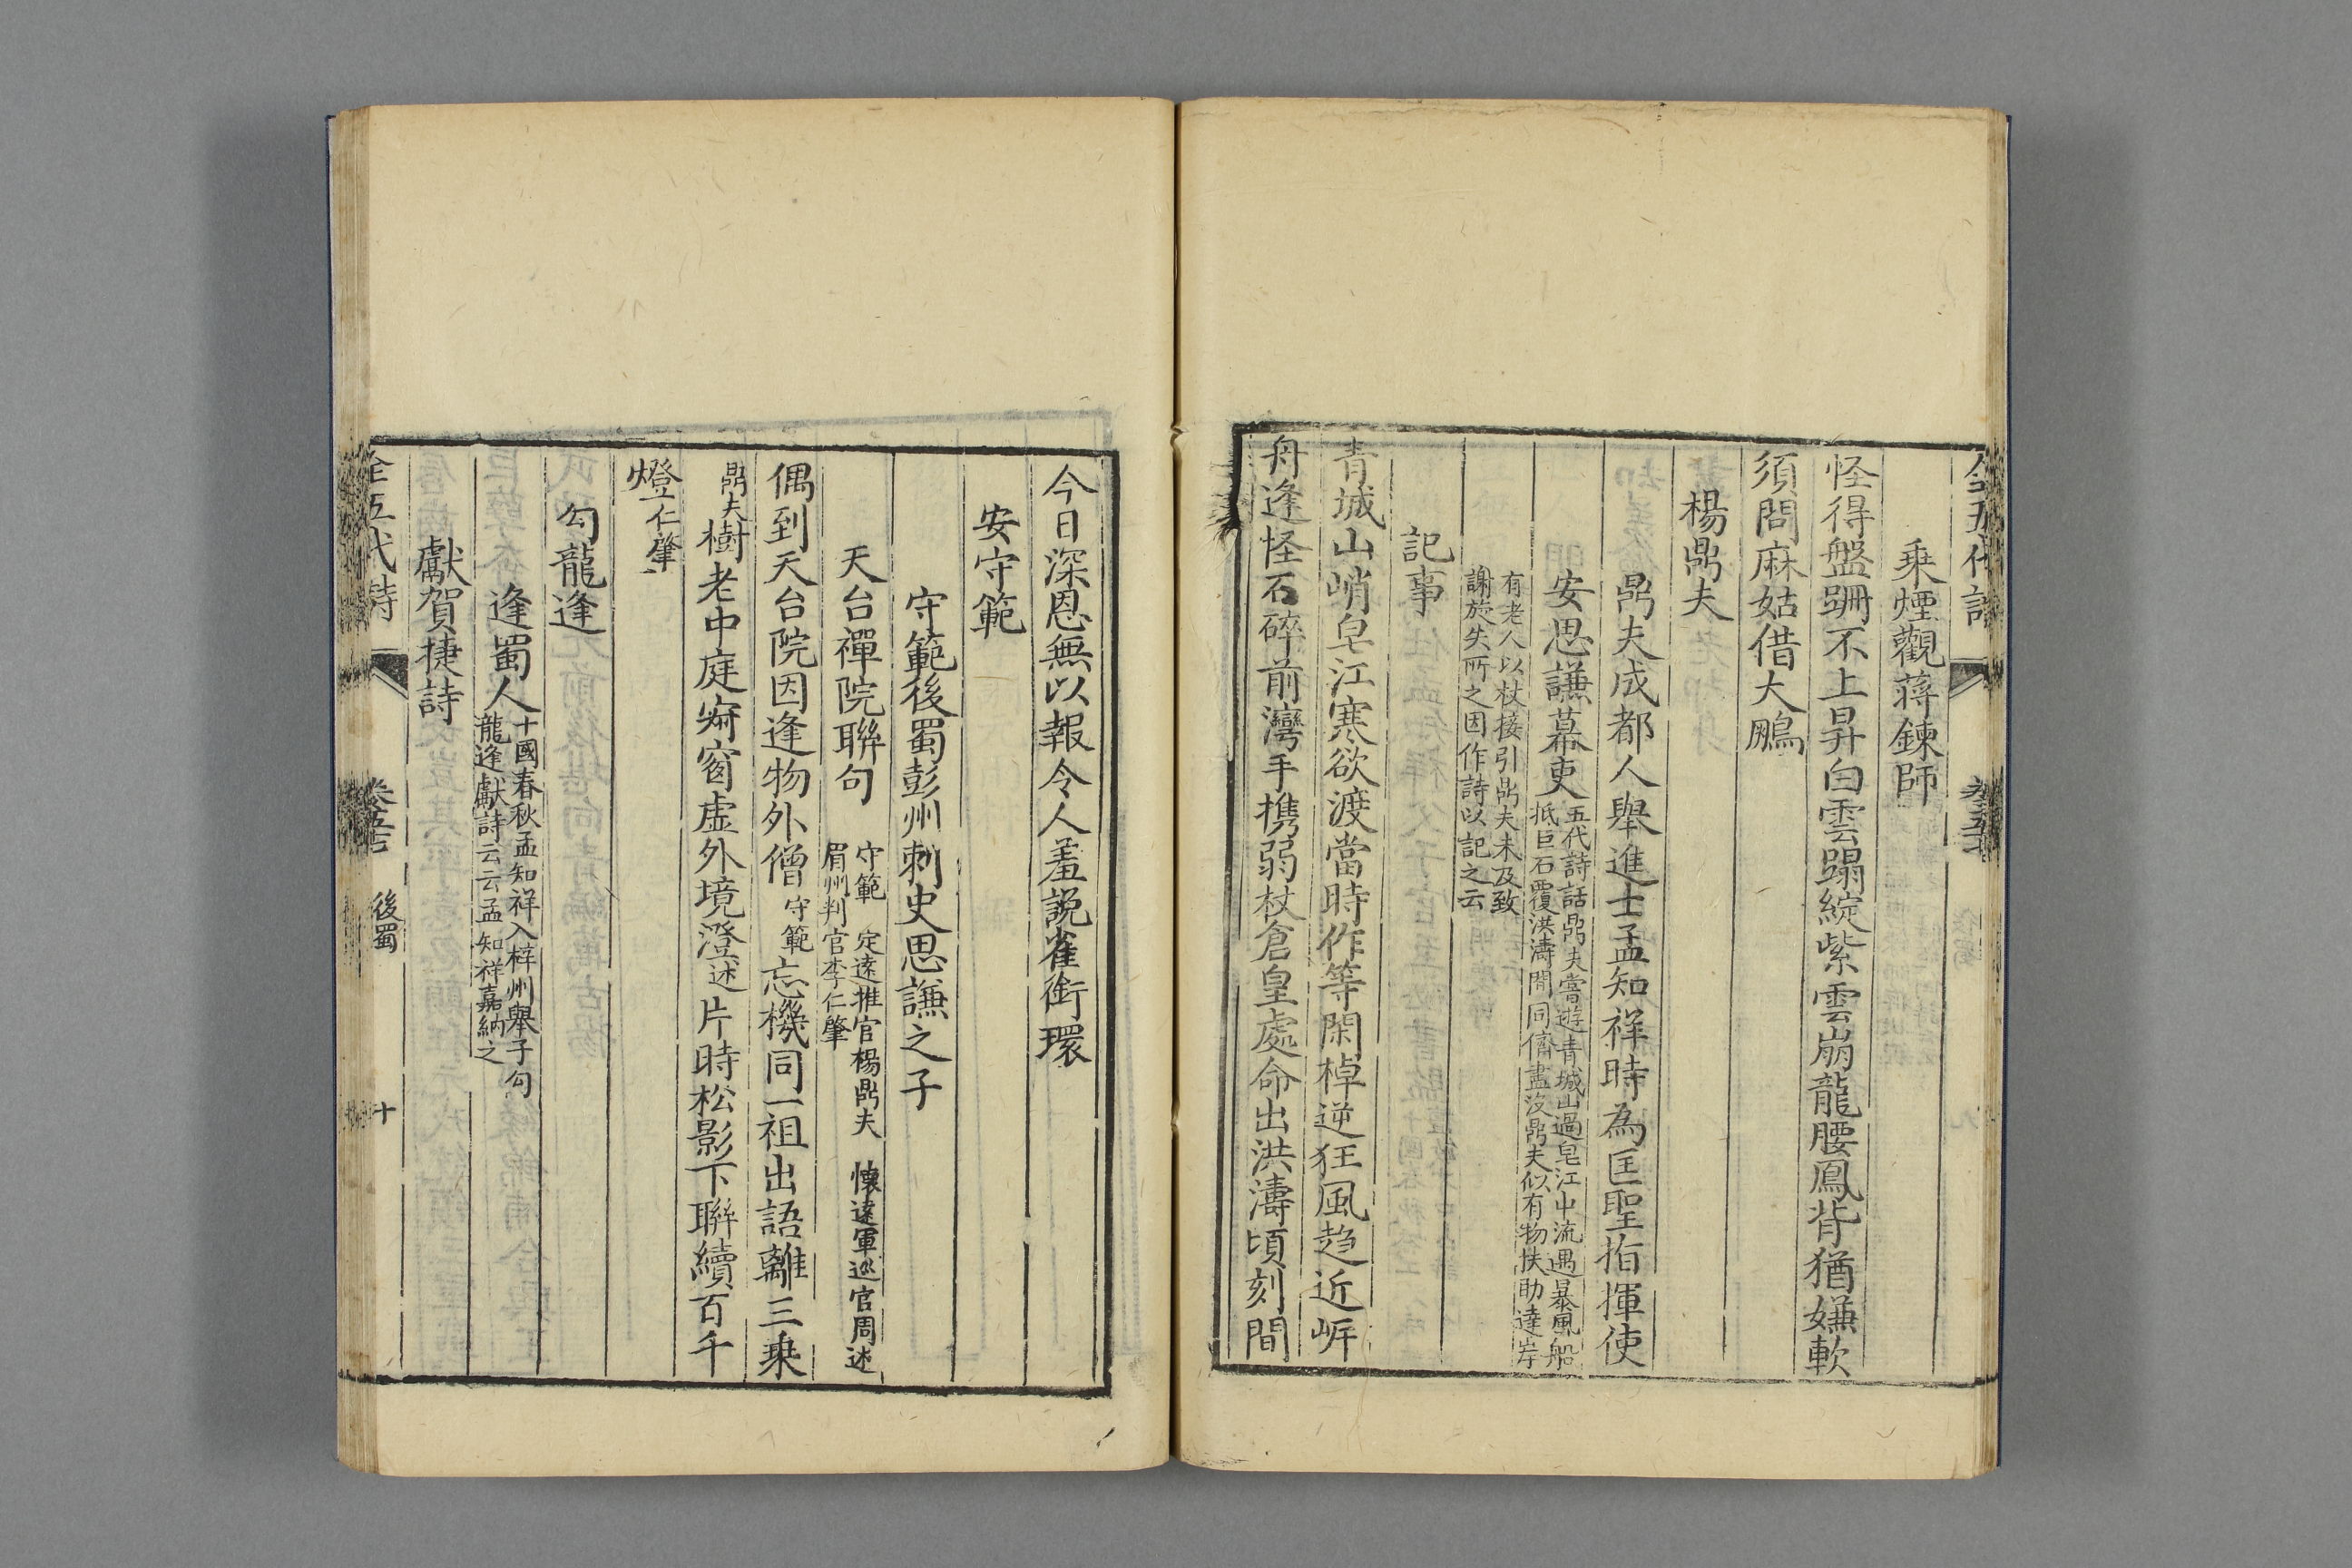 乗煙觀蔣鍊師
怪得盤跚不上昇白雲蹋綻紫雲崩龍腰鳳背猶嫌軟
須問麻姑借大鵬
楊鼎夫
鼎夫成都人舉進士孟知祥時為匡聖指揮使
安思謙幕吏五代詩話鼎夫嘗遊青城山過皂江中流遇暴風船
抵巨石覆洪濤間同儕盡沒鼎夫似有物扶助達岸
有老人以杖接引鼎夫未及致
謝旋失所之因作詩以記之云
記事
青城山峭皂江寒欲渡當時作等閑棹逆狂風趋近岸
舟逢怪石碎前灣手携弱杖倉皇處命出洪濤頃刻間
今日深恩無以報令人羞説雀銜環
安守範
守範後蜀彭州刺史思謙之子
天台禪院聯句 守範 定遠推官楊鼎夫 懷遠軍巡官周述
眉州判官李仁肇
偶到天台院因逢物外僧守範忘機同一祖出語離三乗
鼎夫樹老中庭寂窗虛外境澄述片時松影下聯續百千
燈仁肇
勾龍逢
逢蜀人十國春秋孟知祥入梓州舉子勾
龍逢獻詩云云孟知祥嘉納之
獻賀捷詩
全五代詩 卷五七 後蜀 十